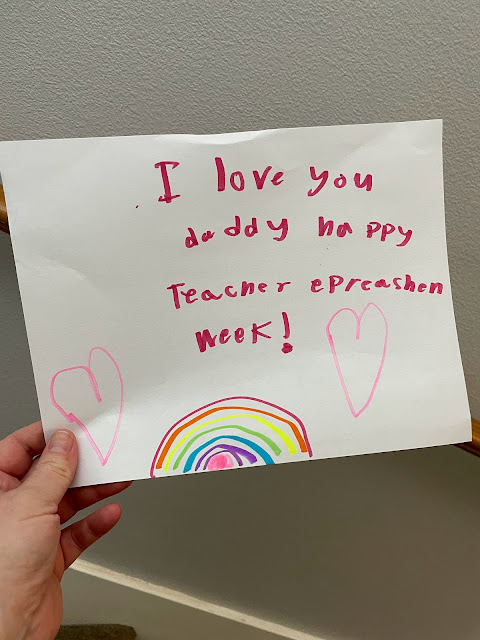 I love you
daddy happy
Teacher epreashen
week!